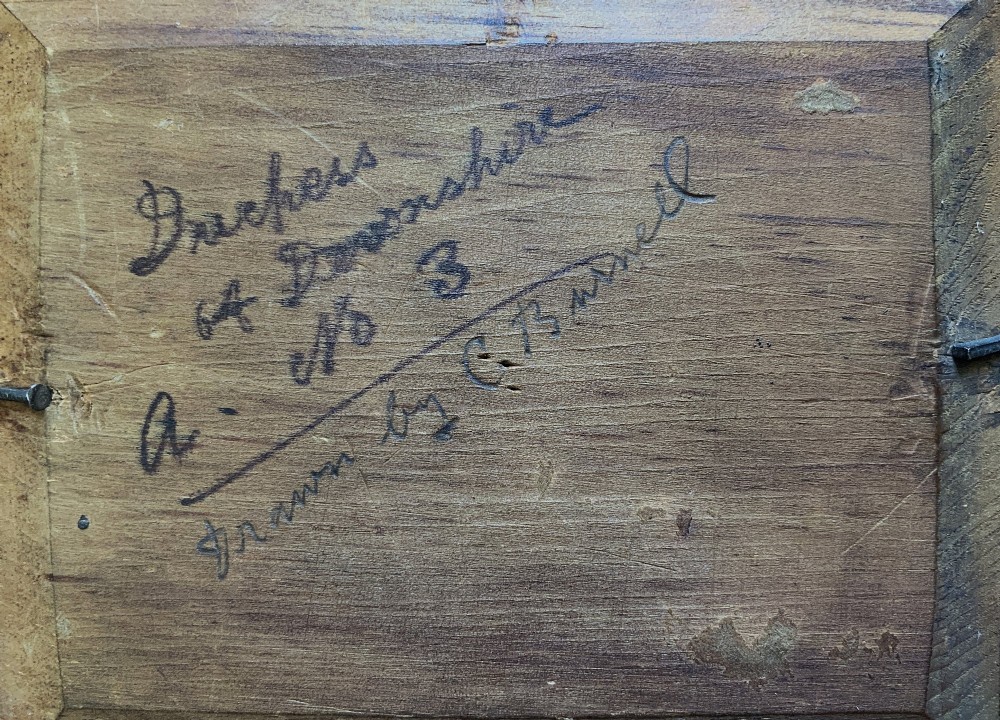 Duchess
of Downshire
No 3
a -
Drawn by C. Burnell